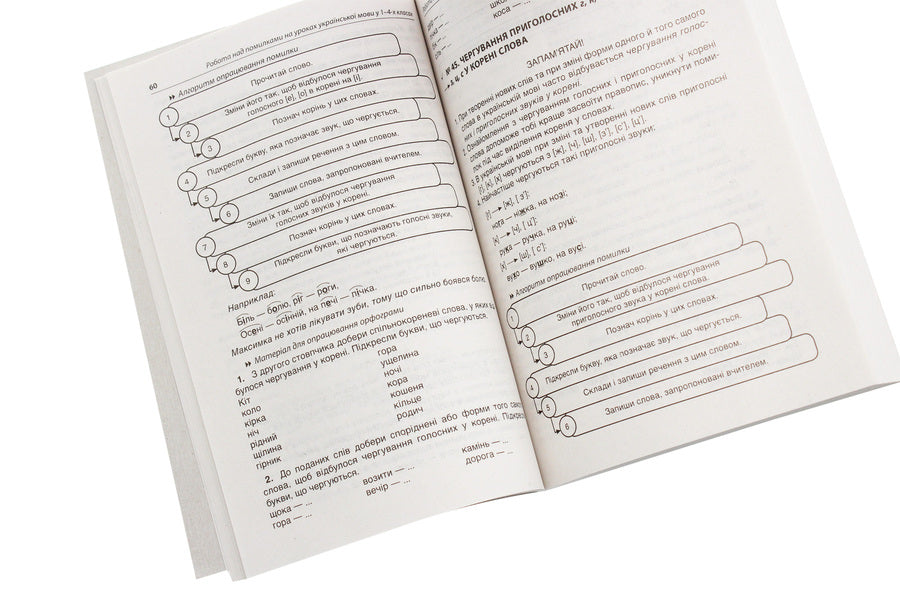 60
Робота над помилками на уроках української мови у 1–4-х класах
Алгоритм опрацювання помилки
1
Прочитай слово.
2
Зміни його так, щоб відбулося чергування
голосного [е], [о] в корені на [і].
3
Познач корінь у цих словах.
4
Підкресли букву, яка позначає звук, що чергується.
5
Склади і запиши речення з цим словом.
6
Запиши слова, запропоновані вчителем.
7
Зміни їх так, щоб відбулося чергування
голосних звуків у корені.
8
Познач корінь у цих словах.
9
Підкресли букви, що позначають голосні звуки,
які чергуються.
Наприклад:
Біль — болю, ріг — роги,
Осені — осінній, на печі — пічка.
Максимка не хотів лікувати зуби, тому що сильно боявся болю.
Матеріал для опрацювання орфограми
1. З другого стовпчика добери спільнокореневі слова, у яких від-
булося чергування у корені. Підкресли букви, що чергуються.
Кіт
коло
кірка
ніч
рідний
щілина
гірник
гора
ущелина
ночі
кора
кошеня
кільце
родич
2. До поданих слів добери споріднені або форми того
слова, щоб відбулося чергування голосних у корені.
букви, що чергуються.
щока — ...
гора — ...
возити — ...
вечір — ...
камінь — ...
дорога — ...
коса — ...
№ 45. ЧЕРГУВАННЯ ПРИГОЛОСНИХ г,
ц, с У КОРЕНІ СЛОВА
ЗАПАМ'ЯТАЙ!
1. При творенні нових слів та при зміні форми одного й того самого
слова в українській мові часто відбувається чергування голос-
них і приголосних звуків у корені.
2. Ознайомлення з чергуванням голосних і приголосних у корені
слова допоможе тобі краще засвоїти правопис, уникнути поми-
лок під час виділення кореня у словах.
3. В українській мові при зміні та утворенні нових слів приголосні
[г], [к], [х] чергуються з [ж], [ч], [ш], [з'], [с'], [ц'].
4. Найчастіше чергуються такі приголосні звуки:
[г] → [ж], [з']:
нога — ніжка, на нозі;
[к] → [ч], [ц']:
рука — ручка, на руці;
[х] → [ш], [с']:
вухо — вушко, на вусі.
Алгоритм опрацювання помилки
1
Прочитай слово.
2
Зміни його так, щоб відбулося чергування
приголосного звука у корені слова.
3
Познач корінь у цих словах.
4
Підкресли букву, яка позначає звук, що чергується.
5
Склади і запиши речення з цим словом.
6
Запиши слова, запропоновані вчителем.